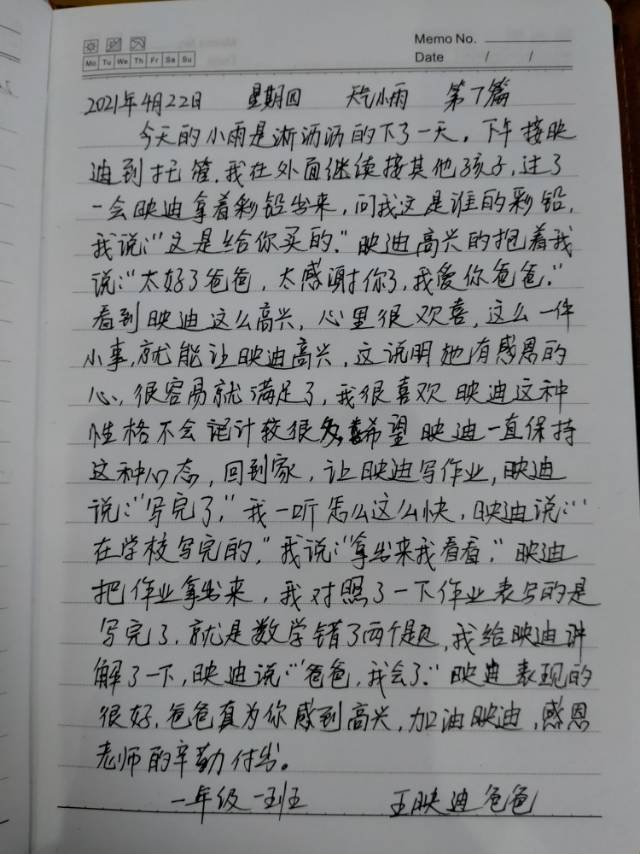 Memo No.
Mo Tu We Th Fr Sa Su
Date / /
2021年4月22日 星期四 天气小雨 第7篇
今天的小雨是淅沥沥的下了一天，下午接映
迪到托管，我在外面继续接其他孩子，过了
一会映迪拿着彩铅出来，问我这是谁的彩铅，
我说：“这是给你买的。”映迪高兴的抱着我
说：“太好了爸爸，太感谢你了，我爱你爸爸。”
看到映迪这么高兴，心里很欢喜，这么一件
小事，就能让映迪高兴，这说明她有感恩的
心，很容易就满足了，我很喜欢映迪这种
性格不会计较很多，希望映迪一直保持
这种心态，回到家，让映迪写作业，映迪
说：“写完了。”我一听怎么这么快，映迪说：“
在学校写完的。”我说：“拿出来我看看。”映迪
把作业拿出来，我对照了一下作业表写的是
写完了，就是数学错了两个题，我给映迪讲
解了一下，映迪说：“爸爸，我会了。”映迪表现的
很好，爸爸真为你感到高兴，加油映迪，感恩
老师的辛勤付出。
一年级一班 王映迪爸爸